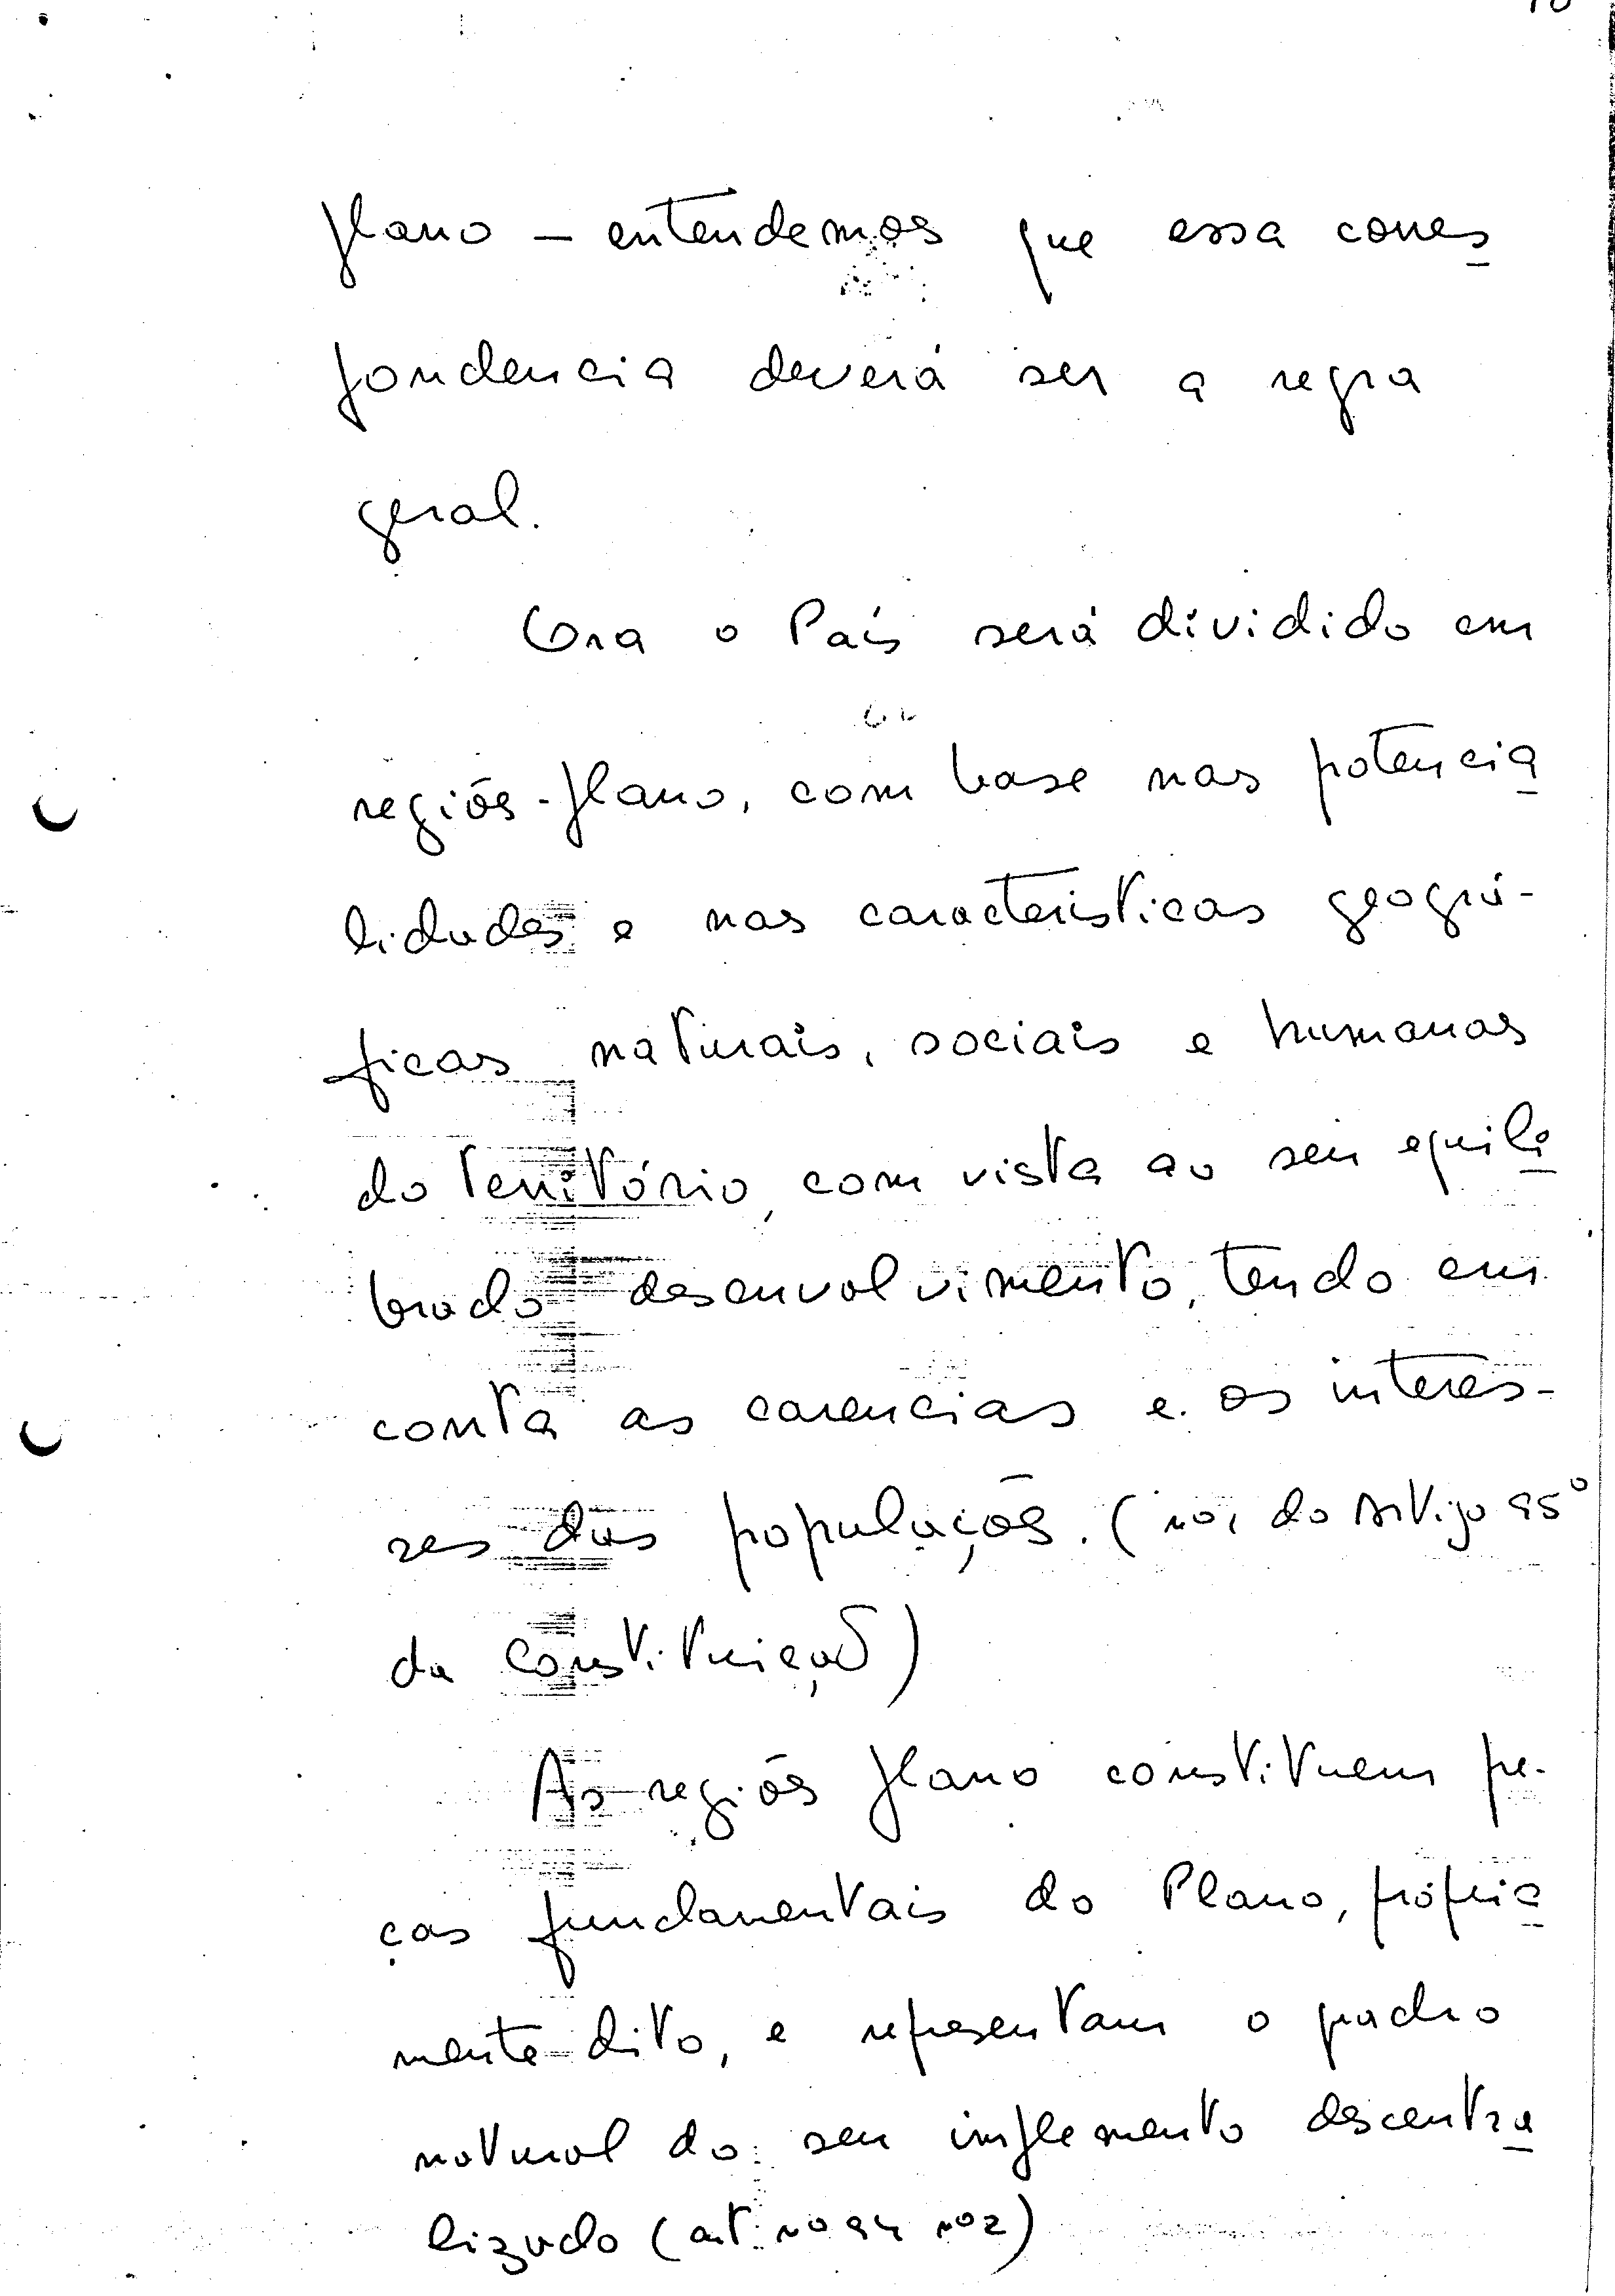 plano — entendemos que essa corres
pondencia deverá ser a regra
geral.
Ora o País será dividido em
regiões-plano, com base nas potencia
lidades e nas características geográ-
ficas naturais, sociais e humanas
do território, com vista ao seu equili
brado desenvolvimento, tendo em
conta as carencias e os interes-
ses das populações. (nº1 do Artigo 95º
da Constituição)
As regiões plano constituem pe-
ças fundamentais do Plano, própria
mente dito, e representam o quadro
natural do seu implemento descentra
lizado (art. nº 94 nº2)